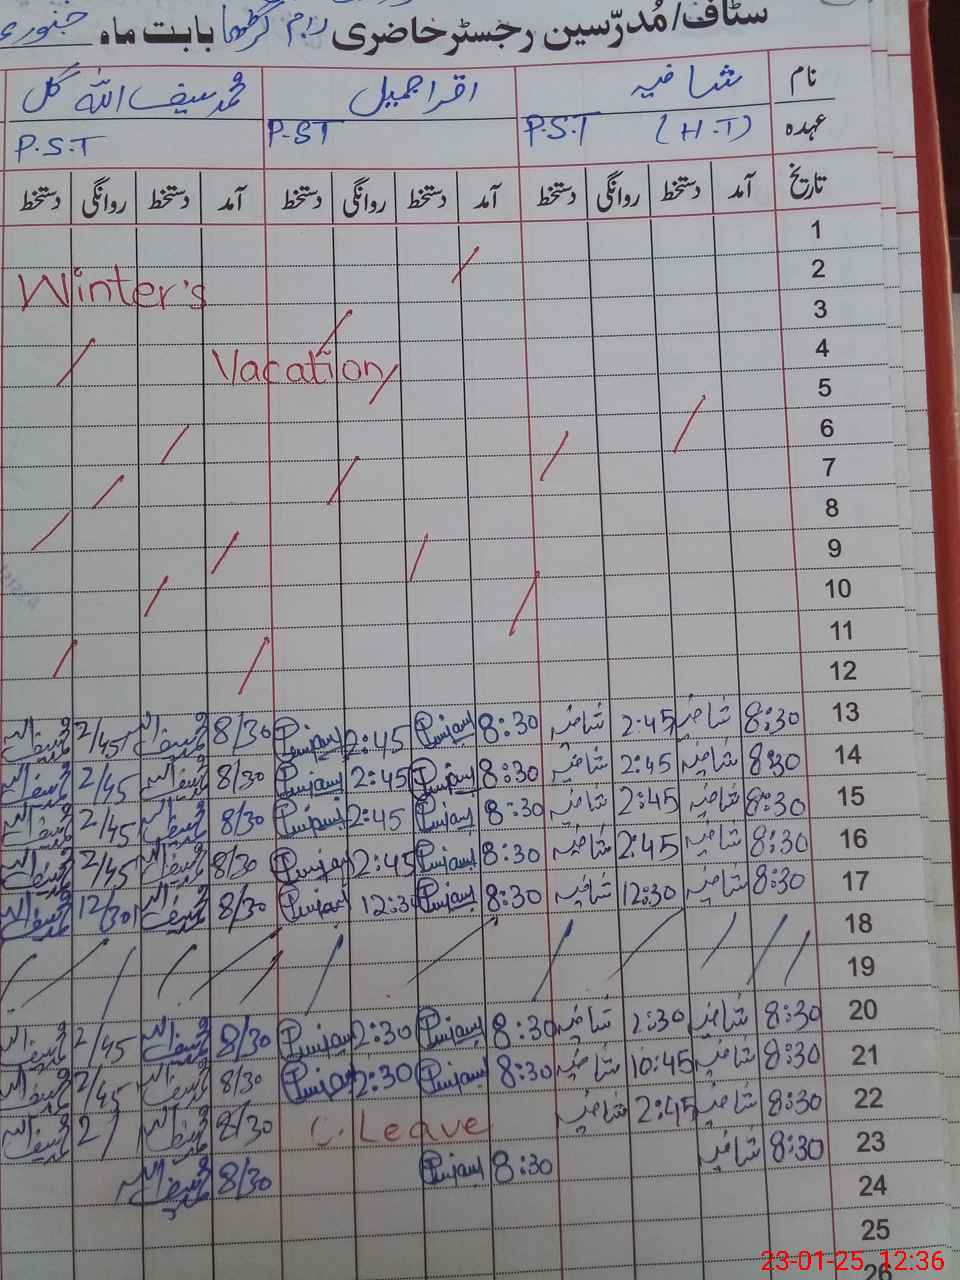 سٹاف/مُدرّسین رجسٹر حاضری رام گڑھا بابت ماہ جنوری
نام شافیہ اقرا جمیل محمد سیف اللہ گل
عہدہ P.S.T (H.T) P.ST P.S.T
تاریخ آمد دستخط روانگی دستخط آمد دستخط روانگی دستخط آمد دستخط روانگی دستخط
1
2
Winter's
3
4
Vacation
5
6
7
8
9
10
11
12
13 8:30 شافیہ 2:45 شافیہ 8:30 2:45 8/30 محمد سیف اللہ 2/45 محمد سیف اللہ
14 8:30 شافیہ 2:45 شافیہ 8:30 2:45 8/30 محمد سیف اللہ 2/45 محمد سیف اللہ
15 8:30 شافیہ 2:45 شافیہ 8:30 2:45 8/30 محمد سیف اللہ 2/45 محمد سیف اللہ
16 8:30 شافیہ 2:45 شافیہ 8:30 2:45 8/30 محمد سیف اللہ 2/45 محمد سیف اللہ
17 8:30 شافیہ 12:30 شافیہ 8:30 12:30 8/30 محمد سیف اللہ 12/30 محمد سیف اللہ
18
19
20 8:30 شافیہ 2:30 شافیہ 8:30 2:30 8/30 محمد سیف اللہ 2/45 محمد سیف اللہ
21 8:30 شافیہ 10:45 شافیہ 8:30 2:30 8/30 محمد سیف اللہ 2/45 محمد سیف اللہ
22 8:30 شافیہ 2:45 شافیہ Leave 8/30 محمد سیف اللہ 2/ محمد سیف اللہ
23 8:30 شافیہ 8:30 8/30 محمد سیف اللہ
24
25
26
23-01-25, 12:36